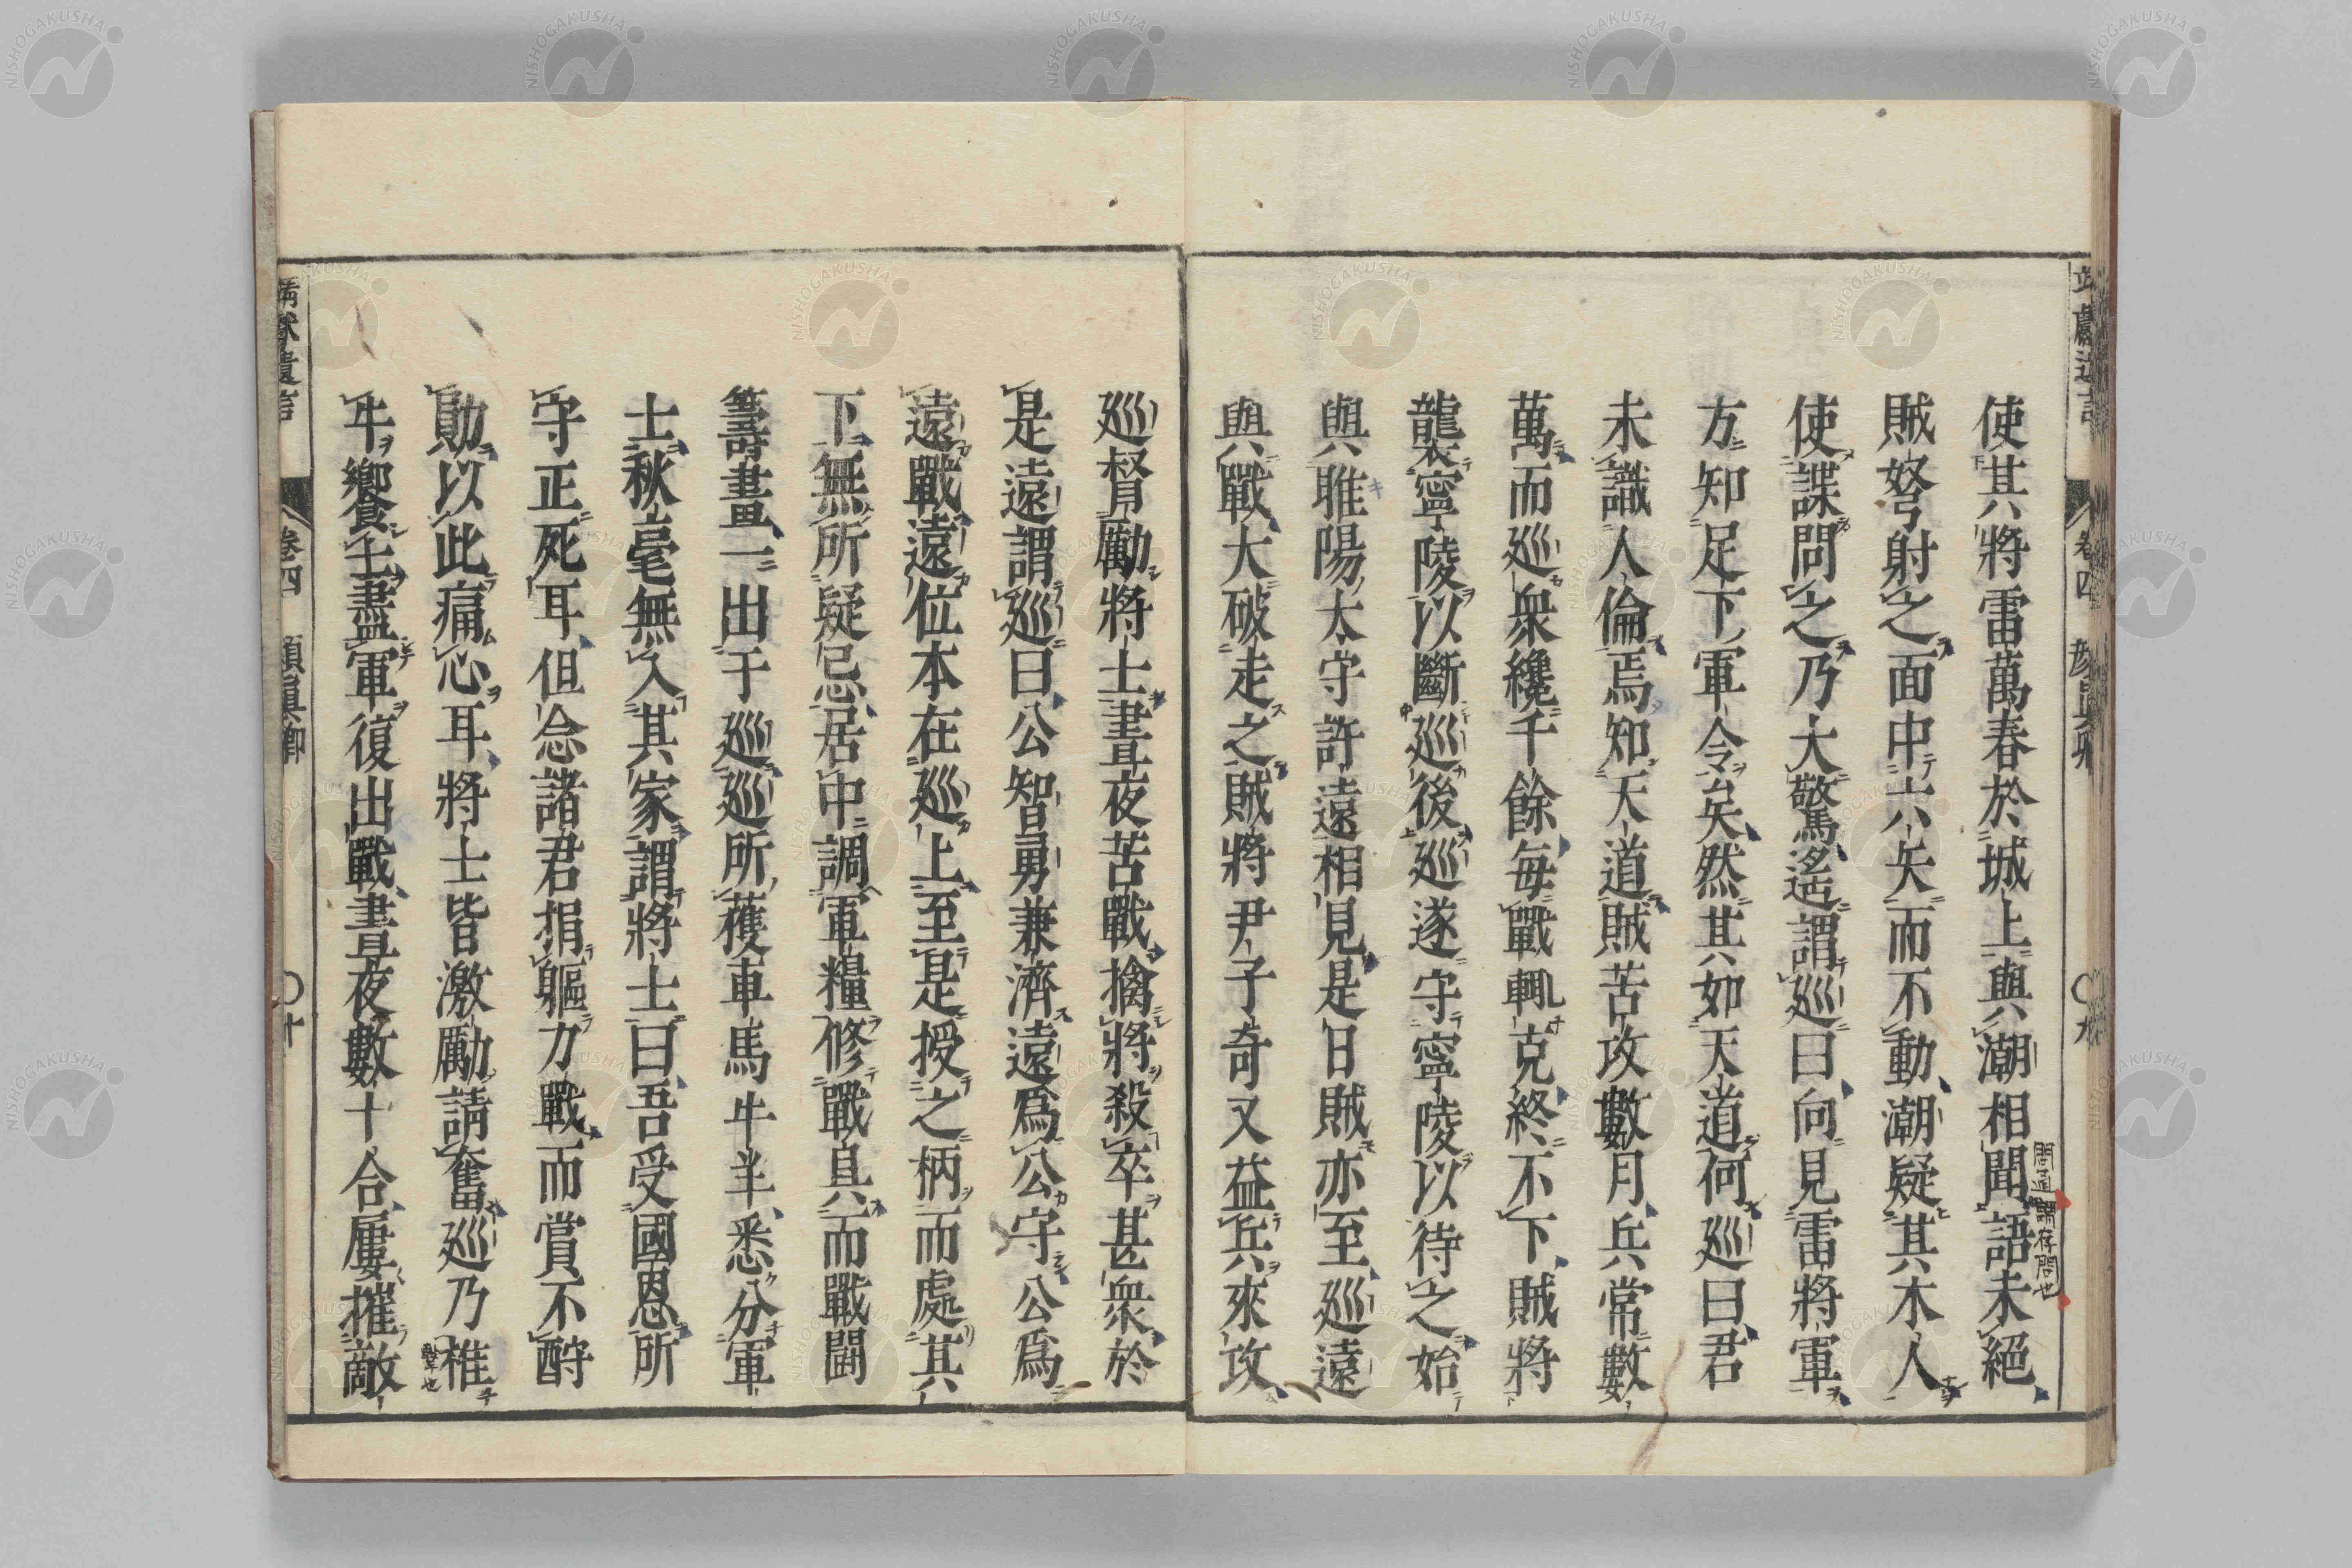 使其將雷萬春於城上與潮相聞語未絕
賊弩射之面中六矢而不動潮疑其木人
使諜問之乃大驚遙謂巡曰向見雷將軍
方知足下軍令矣然其如天道何巡曰君
未識人倫焉知天道賊苦攻數月兵常數
萬而巡衆纔千餘每戰輒克終不下賊將
襲寧陵以斷巡後巡遂守寧陵以待之始
與睢陽太守許遠相見是日賊亦至巡遠
與戰大破走之賊將尹子奇又益兵來攻
巡督勵將士晝夜苦戰擒將殺卒甚衆於
是遠謂巡曰公智勇兼濟遠爲公守公爲
遠戰遠位本在巡上至是授之柄而處其
下無所疑忌居中調軍糧修戰具而戰鬪
籌畫一出于巡巡所獲車馬牛羊悉分軍
士秋毫無入其家謂將士曰吾受國恩所
守正死耳但念諸君捐軀力戰而賞不酧
勛以此痛心耳將士皆激勵請奮巡乃椎
擊也
牛饗士盡軍復出戰晝夜數十合屢摧敵
靖獻遺言 卷四 顏眞卿 〇十
NISHOGAKUSHA